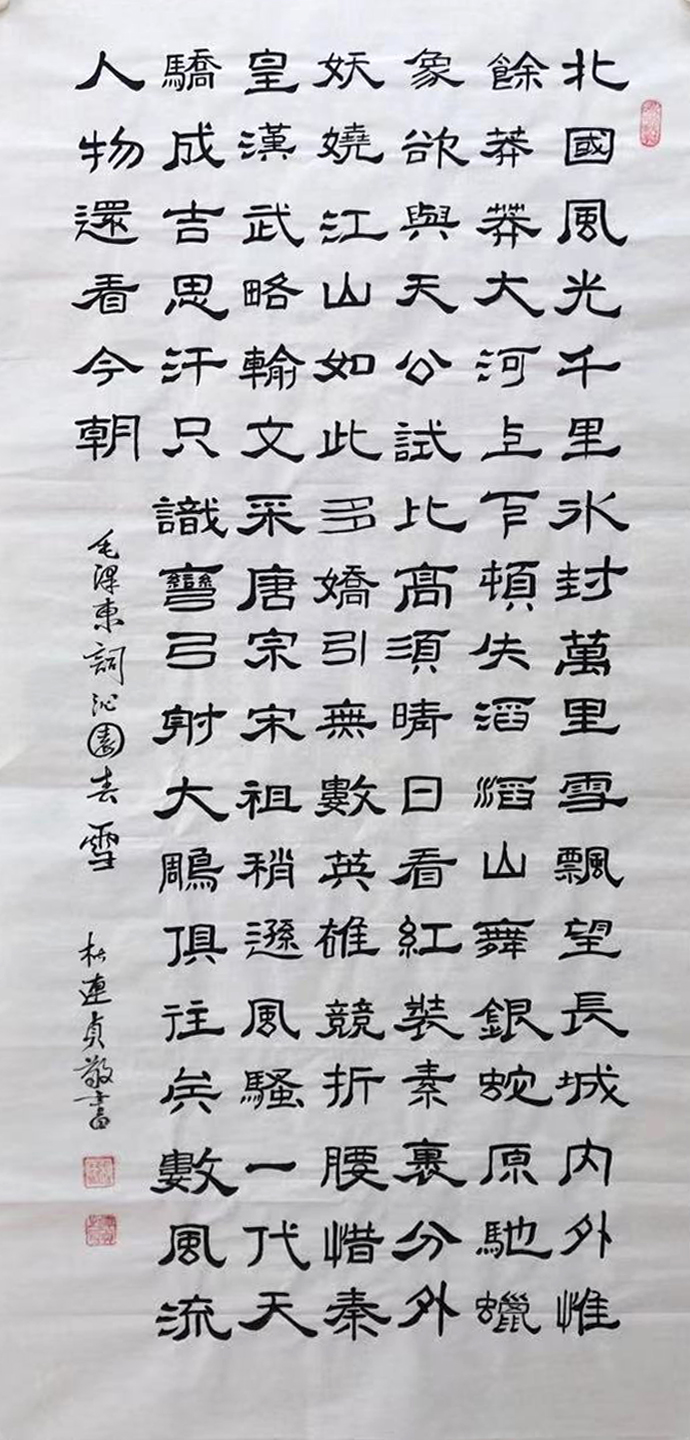 北國風光千里冰封萬里雪飄望長城内外惟
餘莽莽大河上下頓失滔滔山舞銀蛇原馳蠟
象欲與天公試比高須晴日看紅裝素裹分外
妖嬈江山如此多嬌引無數英雄競折腰惜秦
皇漢武略輸文采唐宗宋祖稍遜風騷一代天
驕成吉思汗只識彎弓射大鵰俱往矣數風流
人物還看今朝
毛澤東詞沁園春雪
杜連貞敬書